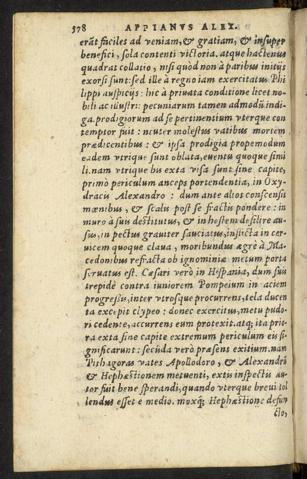 378 APPIANVS ALEX.
erāt faciles ad veniam, & gratiam, & insuper
benefici, sola contenti victoria. atque hactenus
quadrat collatio, nisi quod non à paribus initijs
exorsi sunt: sed ille à regno iam exercitatus Phi
lippi auspicijs: hic à priuata conditione licet no-
bili ac illustri: pecuniarum tamen admodū indi-
ga. prodigiorum ad se pertinentium vterque con
temptor fuit: neuter molestus vatibus mortem
prædicentibus: & ipsa prodigia propemodum
eadem vtrique sunt oblata, euentu quoque simi
li. nam vtrique bis exta visa sunt sine capite,
primò periculum anceps portendentia, in Oxy-
dracis Alexandro: dum ante alios conscensis
mœnibus, & scalis post se fractis pondere: in
muro à suis destitutus, & in hostem desilire au-
sus, in pectus grauiter sauciatus, inflicta in cer-
uicem quoque claua, moribundus ægrè à Ma-
cedonibus refracta ob ignominiæ metum porta
seruatus est. Cæsari verò in Hispania, dum suis
trepidè contra iuniorem Pompeium in aciem
progressis, inter vtrosque procurrens, tela ducen
ta excepit clypeo: donec exercitus, metu pudo-
ri cedente, accurrens eum protexit. atq; ita pri-
ra exta sine capite extremum periculum eis si-
gnificarunt: secūda verò præsens exitium. nam
Pithagoras vates Apollodoro, & Alexandrū
& Hephæstionem metuenti, extis inspectis au-
tor fuit bene sperandi, quando vterque breui tol
lendus esset e medio. moxq; Hephæstione defun
cto,